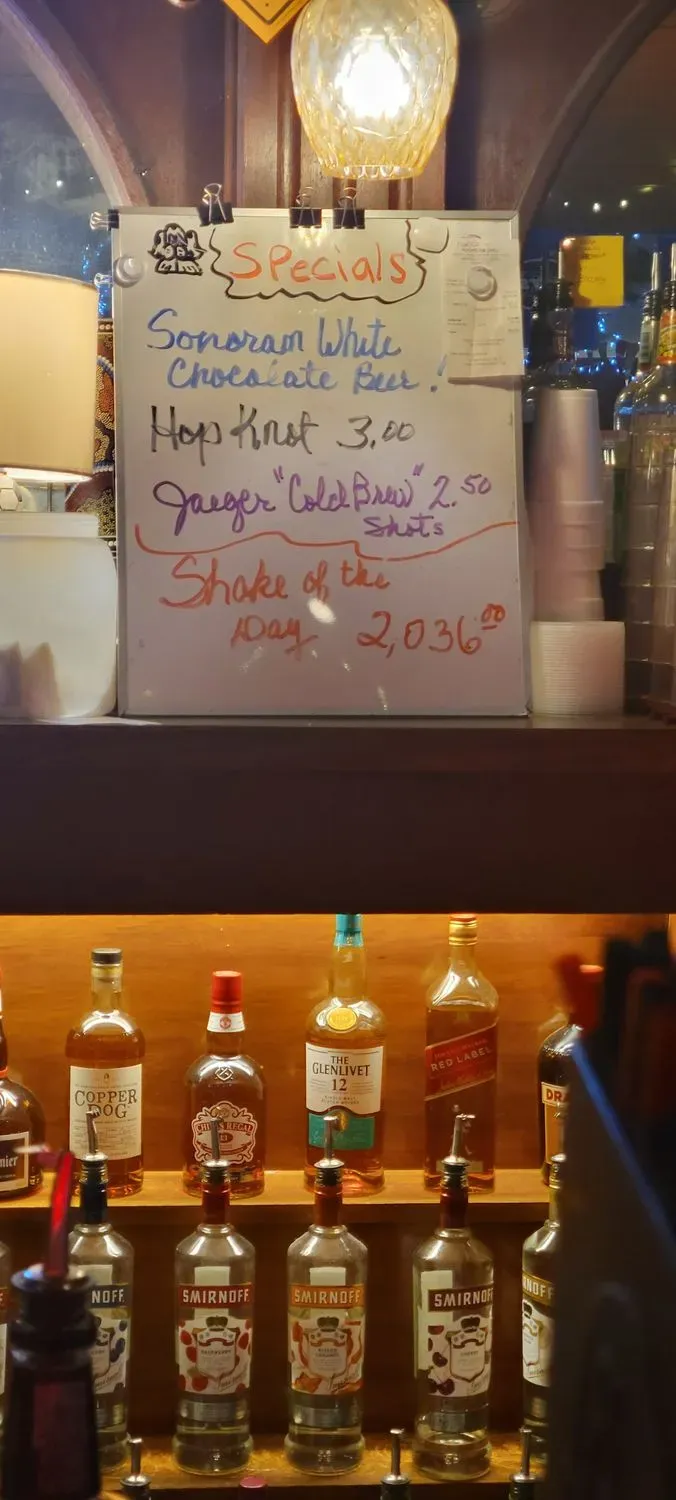 Specials
Sonoran White
Chocolate Beer!
Hop Knot 3.00
Jaeger "Cold Brew" 2.50
Shots
Shake of the
Day 2,036.00
COPPER
DOG
CHIVAS REGAL
13
THE
GLENLIVET
12
RED LABEL
DRA
nier
NOFF
SMIRNOFF
RASPBERRY
SMIRNOFF
SMIRNOFF
CHERRY
SMIRNOFF